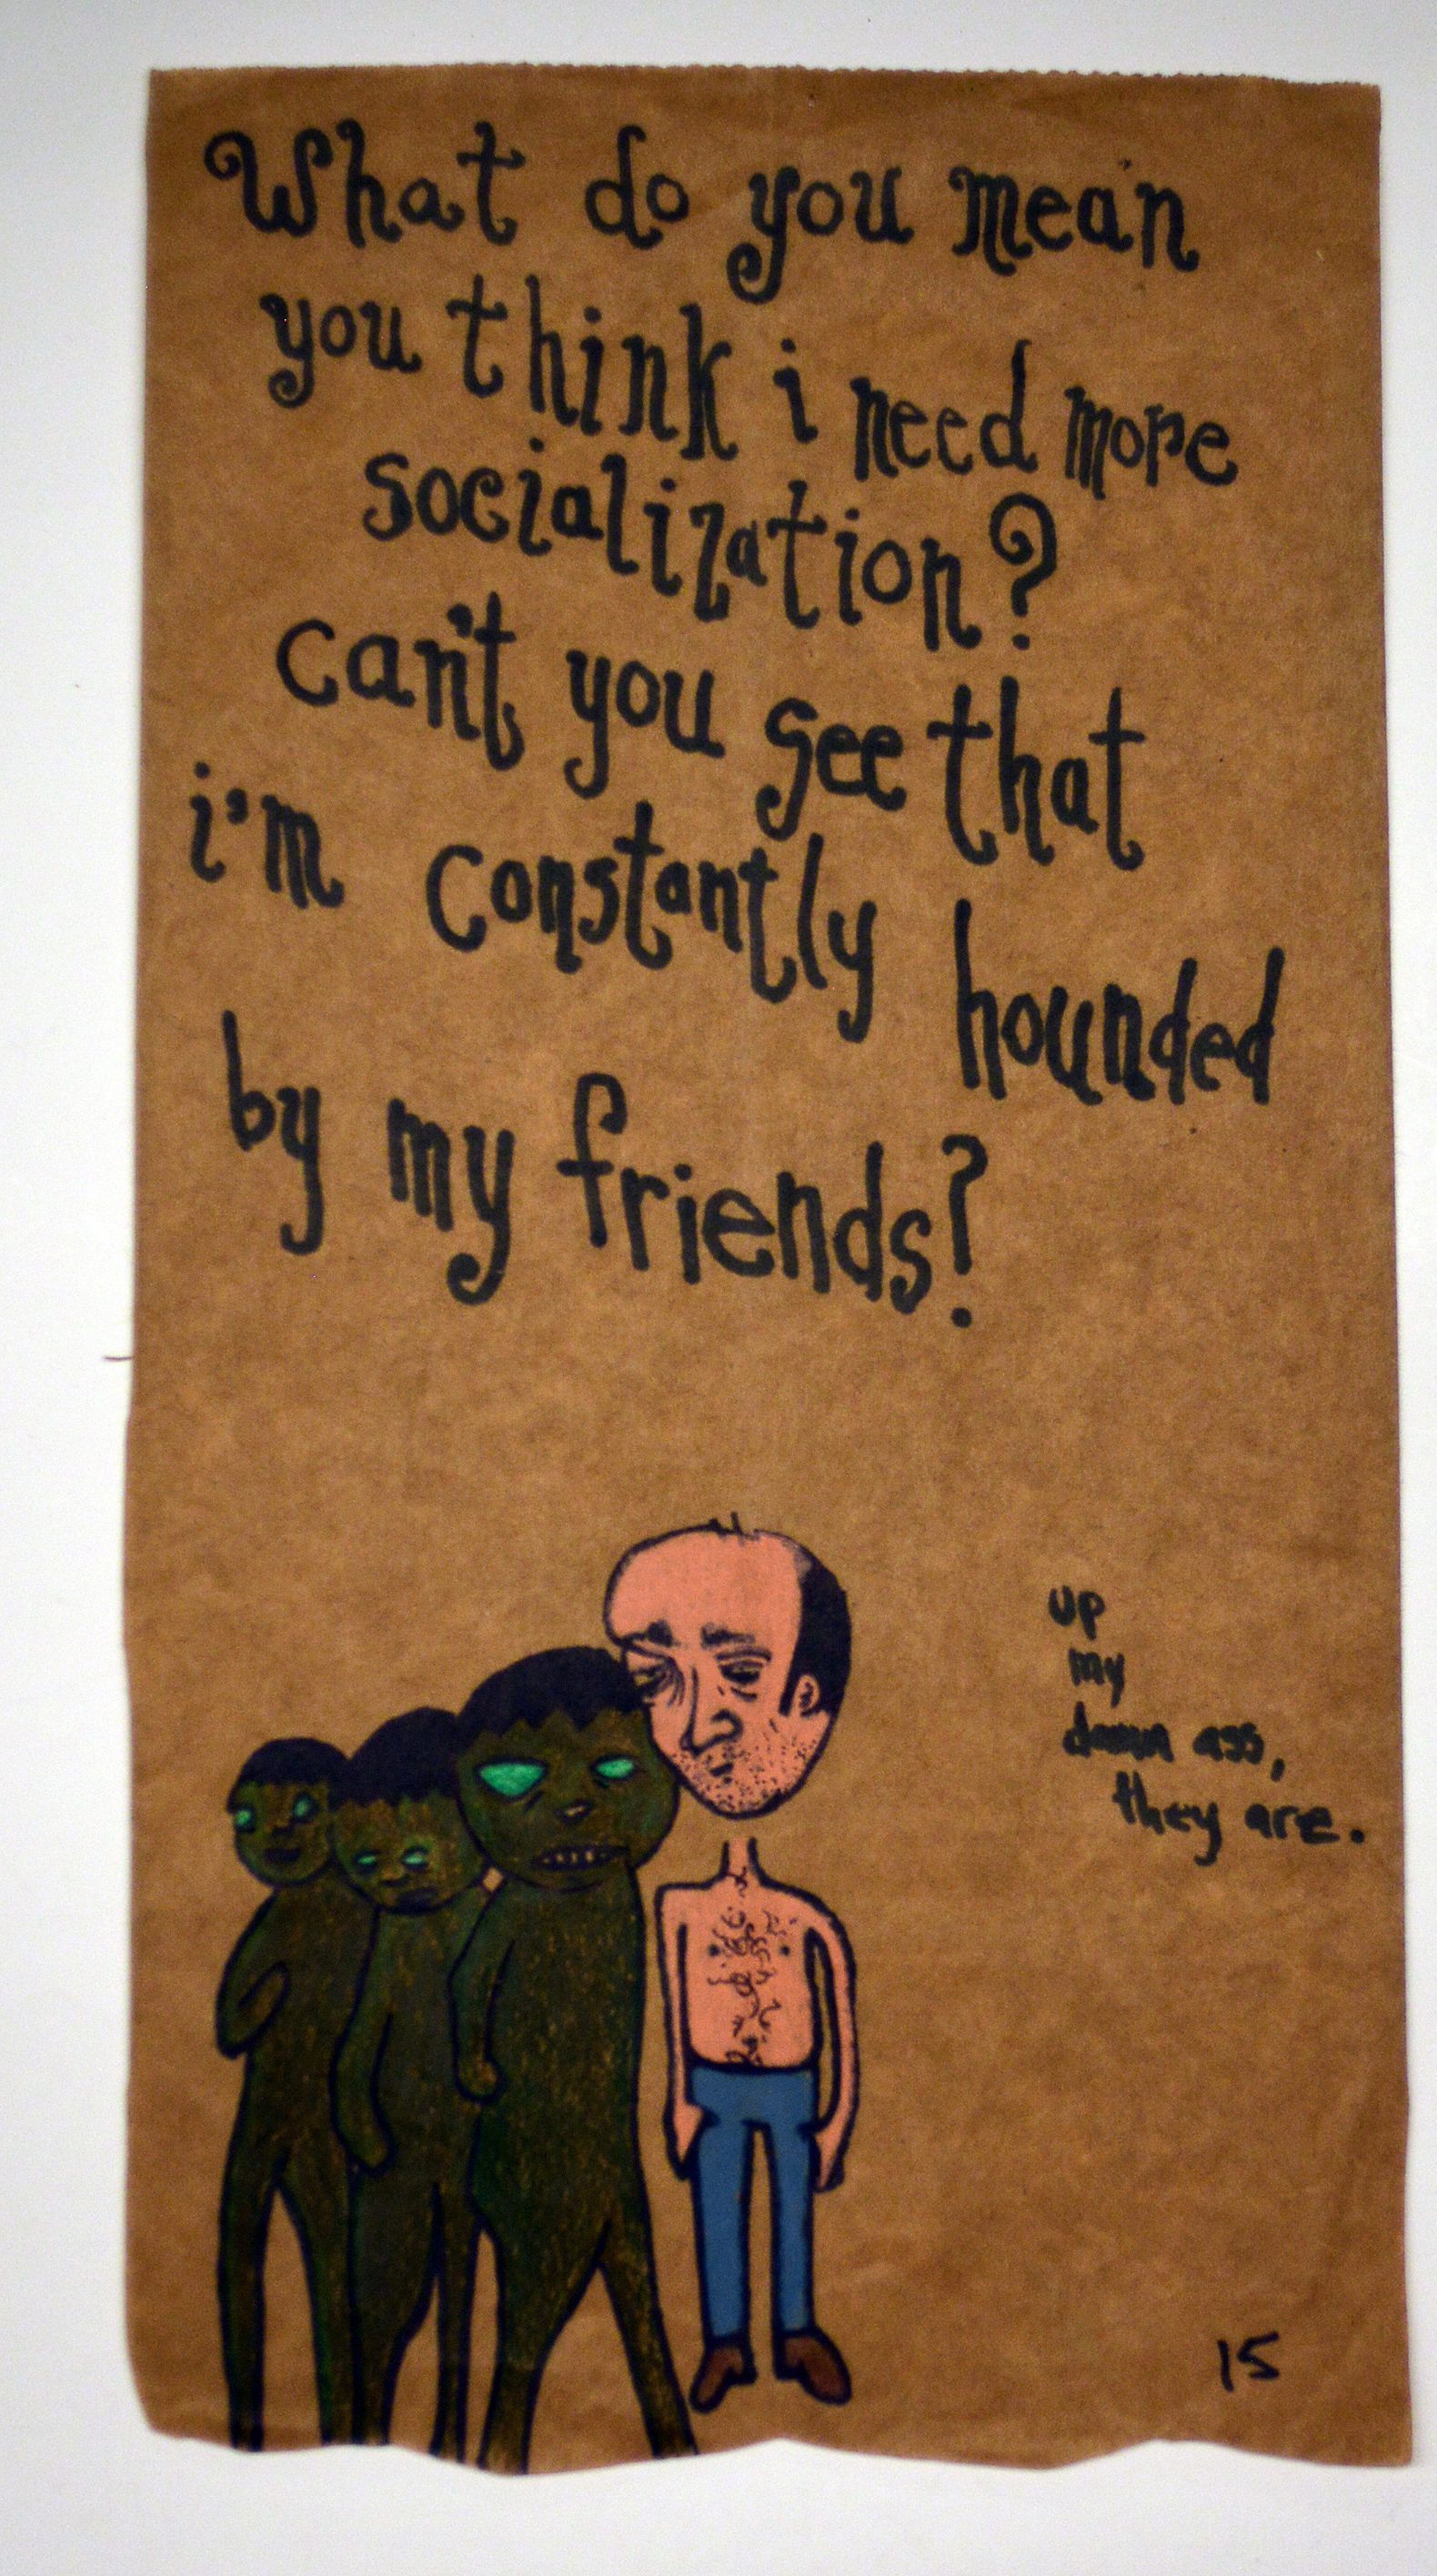 What do you mean
you think i need more
socialization?
can't you see that
i'm constantly hounded
by my friends?
up
my
damn ass,
they are.
15